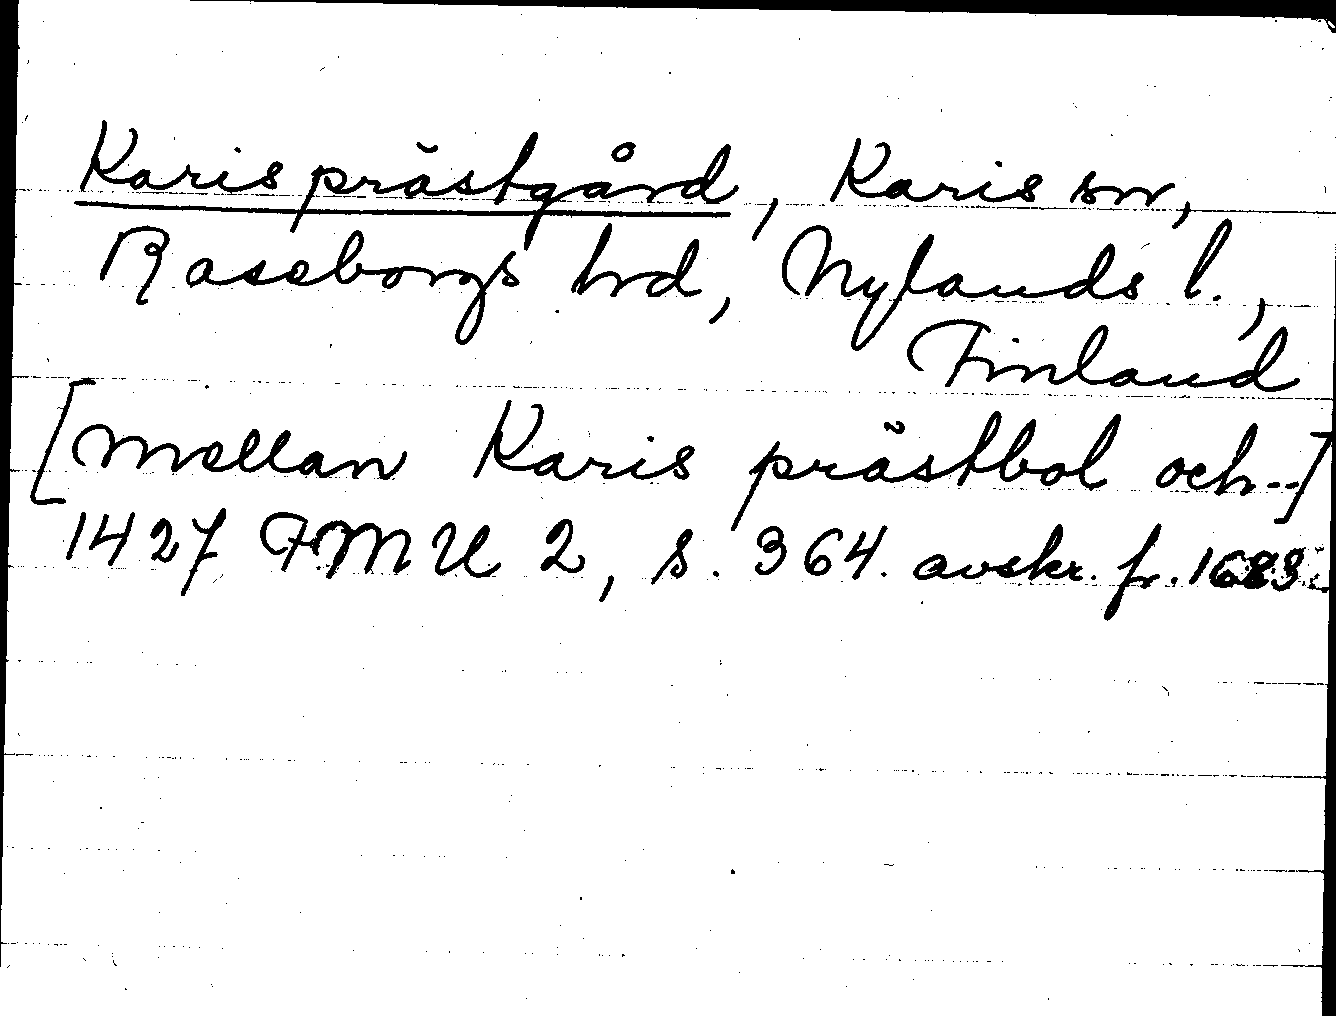 Karis prästgård, Karis sn,
Raseborgs hrd, Nylands l.,
Finland
[mellan Karis prästbol och--]
1427 FMU 2, s. 364. avskr. fr. 1683.